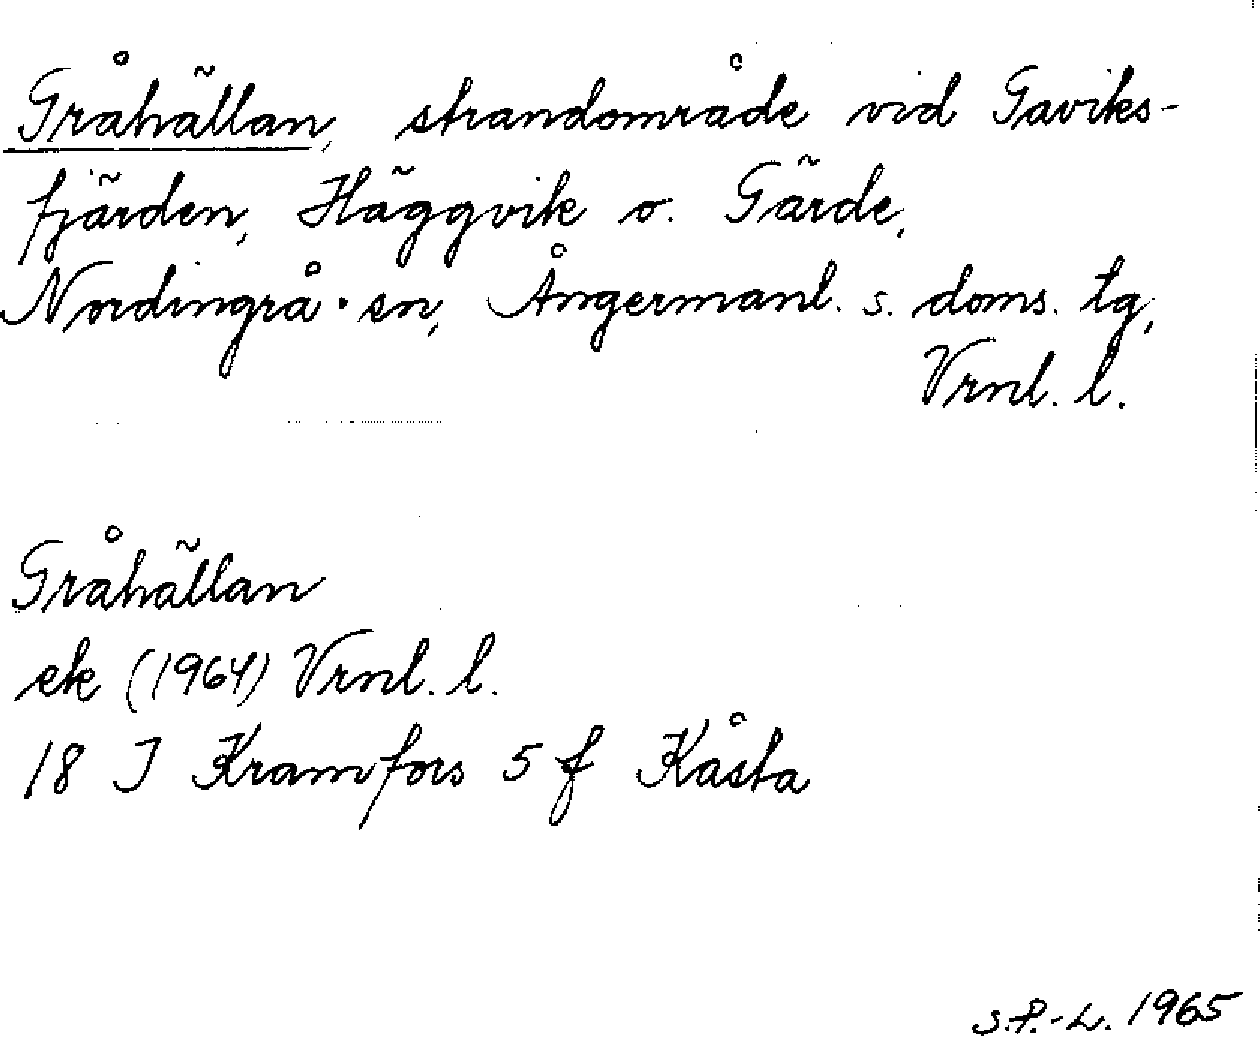 Gråhällan, strandområde vid Gaviks-
fjärden, Häggvik o. Gärde,
Nordingrå sn, Ångermanl. s. doms. tg,
Vrnl. l.
Gråhällan
ek (1964) Vrnl. l.
18 J Kramfors 5 f Kåsta
S.P.-L. 1965